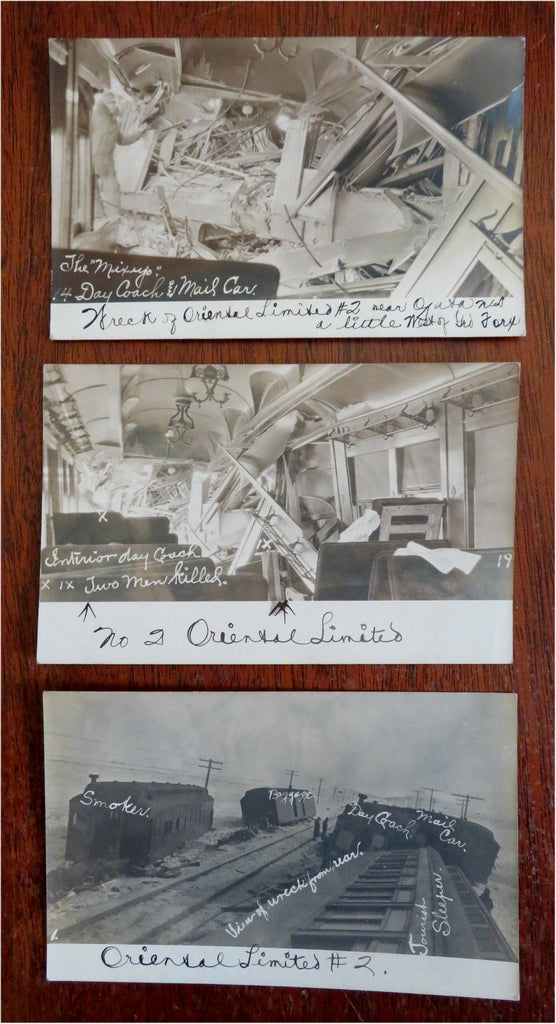 The "Mixup".
14 Day Coach & Mail Car.
Wreck of Oriental Limited #2 near Ojata ND
a little West of Grd Forx
x
1x
Interior day Coach
19
x 1x Two Men Killed.
No 2 Oriental Limited
Smoker.
Baggage
Day Coach.
Mail
Car.
View of wreck from rear.
Tourist
Sleeper.
Oriental Limited # 2.